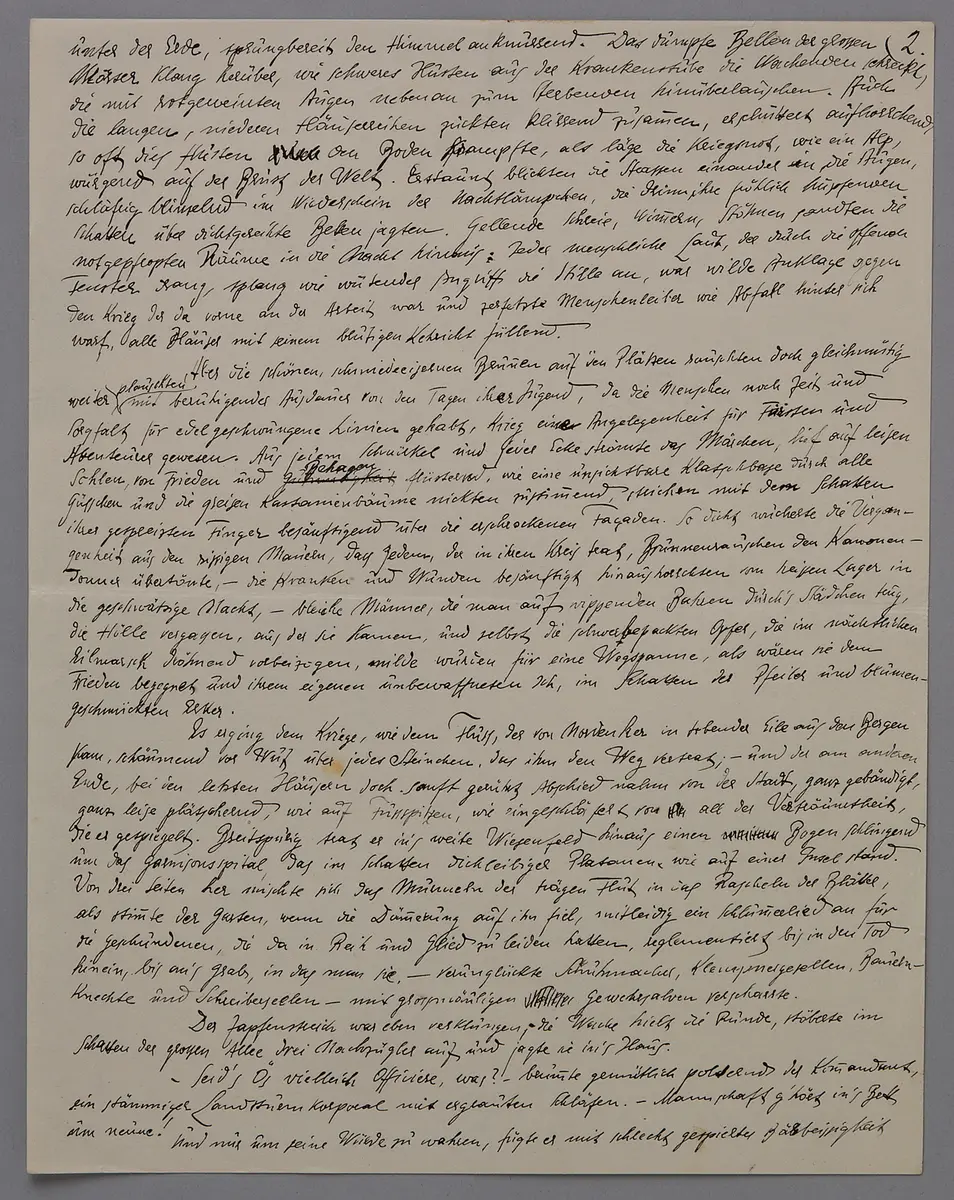 unter der Erde, sprungbereit den Himmel anknurrend. Das dumpfe Bellen der grossen 2.
Mörser klang herüber, wie schweres Husten aus der Krankenstube die Wachenden schreckt,
die mit rotgeweinten Augen nebenan zum Sterbenden hinüberlauschen. Auch
die langen, niederen Häuserreihen zuckten klirrend zusamen, erschüttert aufhorchend,
so oft dies Husten den Boden stampfte, als läge die Kriegsnot, wie ein Alp,
würgend auf der Brust der Welt. Erstaunt blickten die Strassen einander in die Augen,
schläfrig blinzelnd im Wiederschein der Nachtlämpchen, die drinn ihre fröhlich hüpfenden
Schatten über dichtgereihte Betten jagten. Gellende Schreie, Wimern, Stöhnen sandten die
notgepfropften Räume in die Nacht hinaus: Jeder menschliche Laut, der durch die offenen
Fenster drang, sprang wie wütender Angriff die Stille an, war wilde Anklage gegen
den Krieg der da vorne an der Arbeit war und zerfetzte Menschenleiber wie Abfall hinter sich
warf, alle Häuser mit seinem blutigen Kehricht füllend.
Aber die schönen, schmiedeeisernen Brunnen auf den Plätzen rauschten doch gleichmütig
weiter plauschten mit beruhigender Ausdauer von den Tagen ihrer Jugend, da die Menschen noch Zeit und
Sorgfalt für edel geschwungene Linien gehabt, Krieg eine Angelegenheit für Fürsten und
Abenteurer gewesen. Aus jedem Schnörkel und jeder Ecke strömte das Märchen, lief auf leisen
Sohlen, von Frieden und Behagen flüsternd, wie eine unsichtbare Klatschbase durch alle
Gässchen und die greisen Kastanienbäume nickten zustimmend, strichen mit dem Schatten
ihrer gespreizten Finger besänftigend über die erschrockenen Façaden. So dicht wucherte die Vergan-
genheit aus den rissigen Mauern, dass Jedem, der in ihren Kreis trat, Brunnenrauschen den Kanonen-
donner übertönte, – die Kranken und Wunden besänftigt hinaushorchten vom heissen Lager in
die geschwätzige Nacht, – bleiche Männer, die man auf wippenden Bahren durch's Städchen trug,
die Hölle vergassen, aus der sie kamen, und selbst die schwerbepackten Opfer, die im nächtlichen
Eilmarsch dröhnend vorbeizogen, milde wurden für eine Wegspanne, als wären sie dem
Frieden begegnet und ihrem eigenen unbewaffneten Ich, im Schatten der Pfeiler und blumen-
geschmückten Erker.
Es erging dem Kriege, wie dem Fluss, der von Norden her in tobender Eile aus den Bergen
kam, schäumend vor Wut über jedes Steinchen, das ihm den Weg vertrat; – und der am anderen
Ende, bei den letzten Häusern doch sanft gerührt Abschied nahm von der Stadt, ganz gebändigt,
ganz leise plätschernd, wie auf Fussspitzen, wie eingeschläfert von all der Verträumtheit,
die er gespiegelt. Breitspurig trat er in's weite Wiesenfeld hinaus einen Bogen schlingend
um das Garnisonspital, das im Schatten dickleibiger Platanen wie auf einer Insel stand.
Von drei Seiten her mischte sich das Murmeln der trägen Flut in das Rascheln der Blätter,
als stimte der Garten, wenn die Dämerung auf ihn fiel, mitleidig ein Schlumerlied an für
die Geschundenen, die da in Reih und Glied zu leiden hatten, reglementiert bis in den Tod
hinein, bis an's Grab, in das man sie, – verunglückte Schuhmacher, Klempnergesellen, Bauern-
Knechte und Schreiberseelen – mit grossmäuligen Gewehrsalven verscharrte.
Der Zapfenstreich war eben verklungen, die Wache hielt die Runde, stöberte im
Schatten der grossen Allee drei Nachzügler auf und jagte sie in's Haus.
– Seid's Ös vielleich Offiziere, was? – brumte gemütlich polternd der Komandant,
ein stämmiger Landsturmkorporal mit ergrauten Schläfen. – Mannschaft g'hört in's Bett
um neune! Und nur um seine Würde zu wahren, fügte er mit schlecht gespielter Bärbeissigkeit